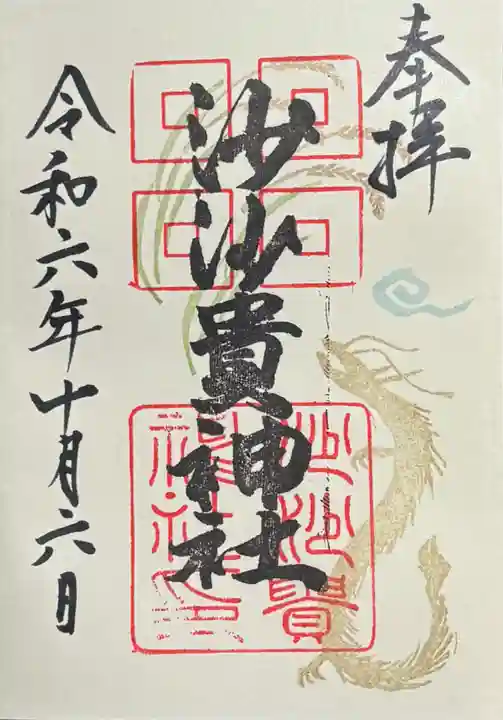 奉拝
沙沙貴神社
沙沙貴
神社印
令和六年十月六日